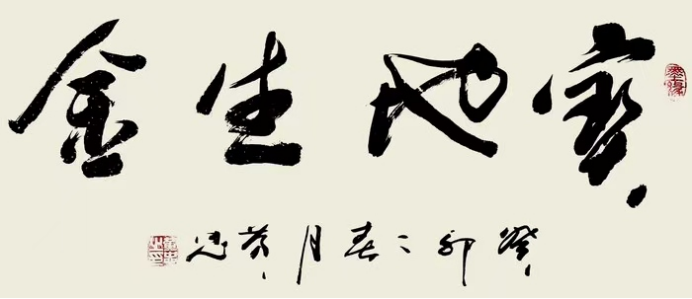 寶地生金
癸卯之春月